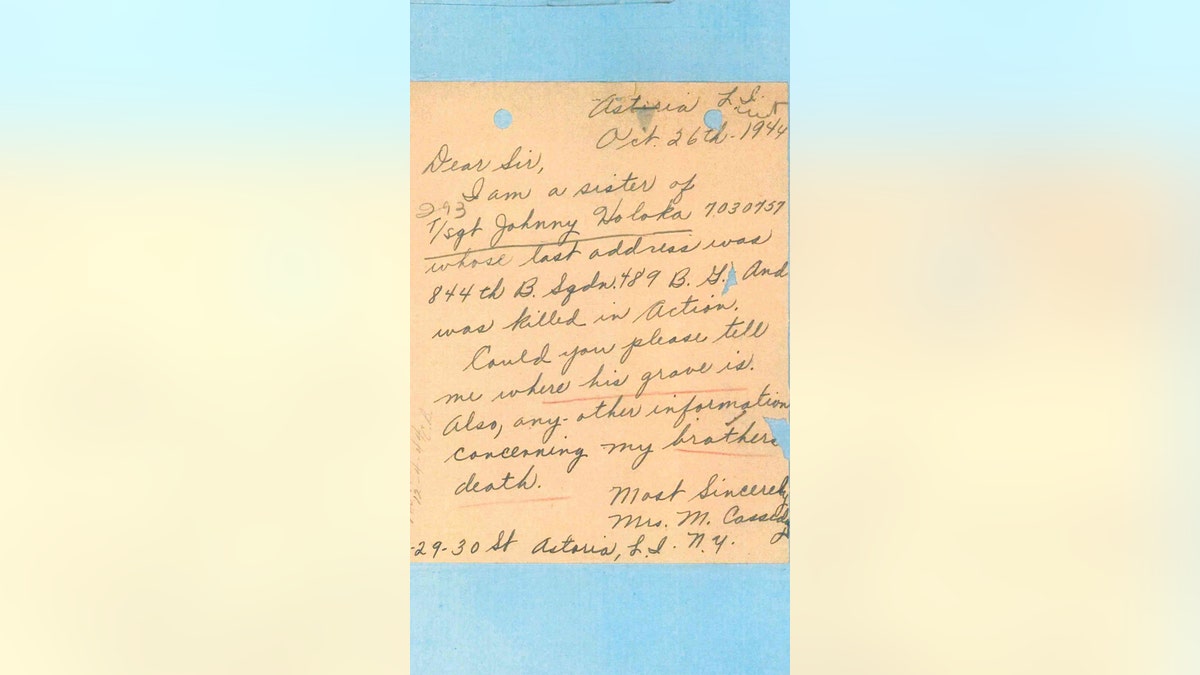 Astoria L.I.
Oct. 26th - 1944
Dear Sir,
I am a sister of
293
T/sgt Johnny Holoka 7030757
whose last address was
844th B. Sqdn. 489 B. G. And
was killed in Action.
Could you please tell
me where his grave is.
Also, any other information
concerning my brothers
death.
Most Sincerely
Mrs. M. Cassidy
-29-30 St Astoria, L.I. N.Y.